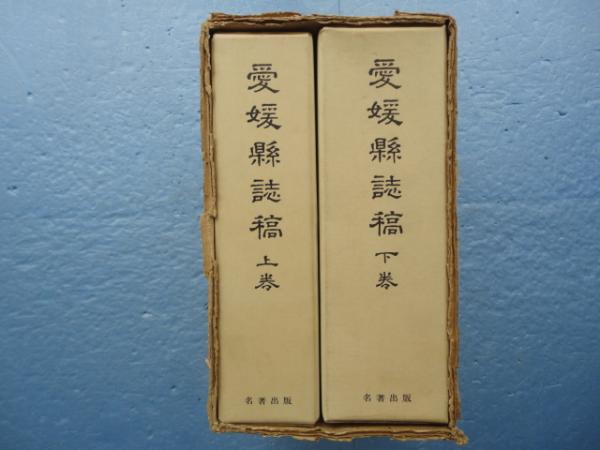 愛媛縣誌稿 上巻
名著出版
愛媛縣誌稿 下巻
名著出版